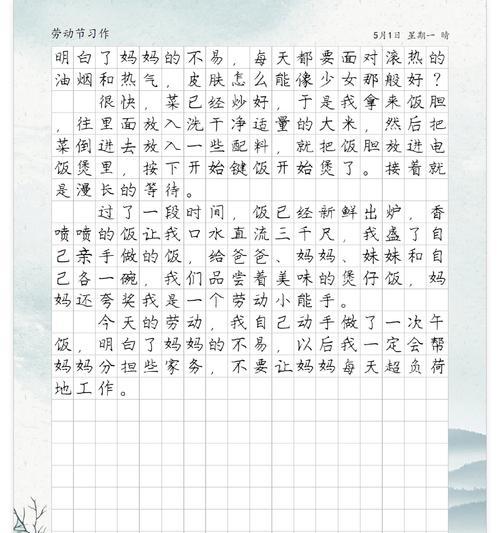 劳动节习作
5月1日 星期一 晴
明白了妈妈的不易，每天都要面对滚热的
油烟和热气，皮肤怎么能像少女那般好？
很快，菜已经炒好，于是我拿来饭胆
，往里面放入洗干净适量的大米，然后把
菜倒进去放入一些配料，就把饭胆放进电
饭煲里，按下开始键饭开始煲了。接着就
是漫长的等待。
过了一段时间，饭已经新鲜出炉，香
喷喷的饭让我口水直流三千尺，我盛了自
己亲手做的饭，给爸爸、妈妈、妹妹和自
己各一碗，我们品尝着美味的煲仔饭，妈
妈还夸奖我是一个劳动小能手。
今天的劳动，我自己动手做了一次午
饭，明白了妈妈的不易，以后我一定会帮
妈妈分担些家务，不要让妈妈每天超负荷
地工作。